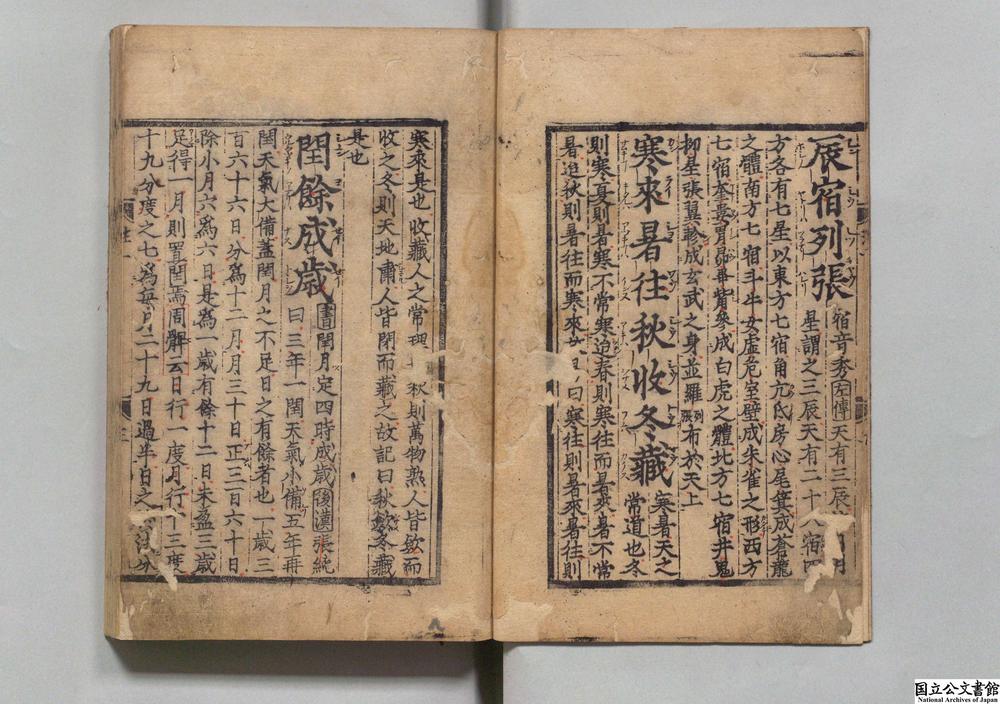 辰宿列張 宿音秀左傳天有三辰
星謂之三辰天有二十八宿四
方各有七星以東方七宿角亢氐房心尾箕成蒼龍
之體南方七宿斗牛女虛危室壁成朱雀之形西方
七宿奎婁胃昴畢觜參成白虎之體北方七宿井鬼
柳星張翼軫成玄武之身並羅列張布於天上
寒來暑往秋收冬藏 寒暑天之
常道也冬
則寒夏則暑寒不常寒迫春則寒往而暑來暑不常
暑迫秋則暑往而寒來 曰寒往則暑來暑往則
寒來是也收藏人之常理 秋則萬物熟人皆斂而
收之冬則天地肅人皆閉而藏之故記曰秋斂冬藏
是也
閏餘成歲 書閏月定四時成歲後漢張純
曰三年一閏天氣小備五年再
閏天氣大備蓋閏月之不足日之有餘者也一歲三
百六十六日分為十二月月三十日正三百六十日
除小月六為六日是為一歲有餘十二日未盈三歲
足得一月則置閏焉周髀云日行一度月行十三度
十九分度之七為每月二十九日過半日之
国立公文書館
National Archives of Japan